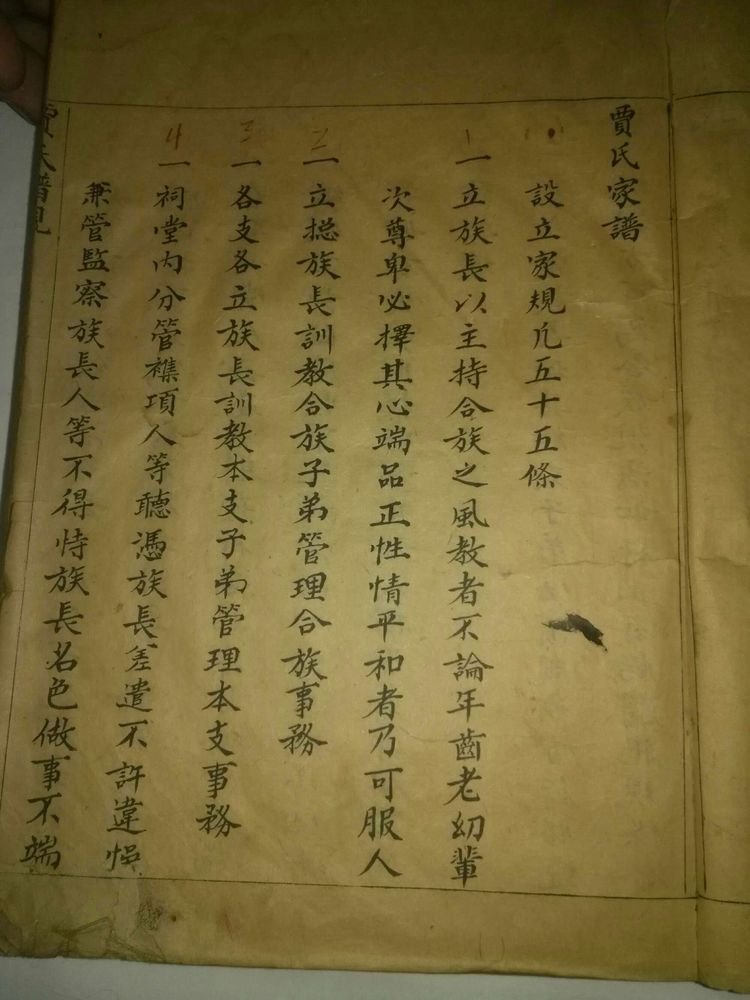 賈氏家譜
設立家規凡五十五條
1
一立族長以主持合族之風教者不論年齒老幼輩
次尊卑必擇其心端品正性情平和者乃可服人
2
一立摠族長訓教合族子弟管理合族事務
3
一各支各立族長訓教本支子弟管理本支事務
4
一祠堂內分管襍項人等聽憑族長差遣不許違悞
兼管監察族長人等不得恃族長名色做事不端
賈氏譜